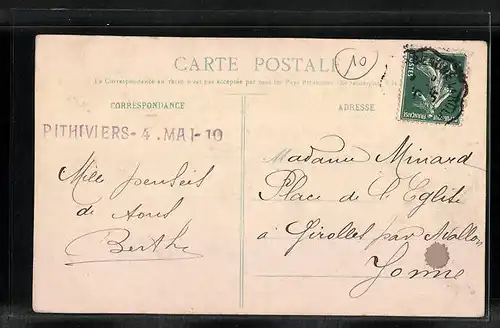 CARTE POSTALE
10
La Correspondance au recto n'est pas acceptée par tous les Pays étrangers
CORRESPONDANCE
ADRESSE
POSTES
PITHIVIERS - 4. MAI - 10
Mille pensées
de tous
Berthe
Madame Minard
Place de l'Eglise
à Girolles par Avallon
Yonne